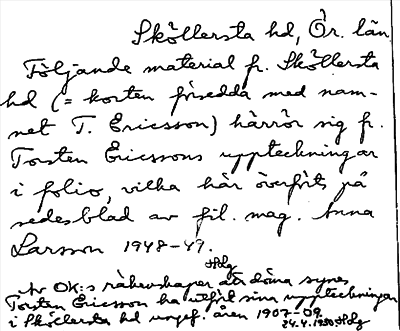 Sköllersta hd, Ör. län.
Följande material fr. Sköllersta
hd (= korten försedda med nam-
net T. Ericsson) härrör sig fr.
Torsten Ericssons uppteckningar
i folio, vilka här överförts på
sedesblad av fil. mag. Anna
Larsson 1948-49.
Av OK:s räkenskaper att döma synes
Torsten Ericsson ha utfört sina uppteckningar
i Sköllersta hd ungef. åren 1907-09.
24.4.1950